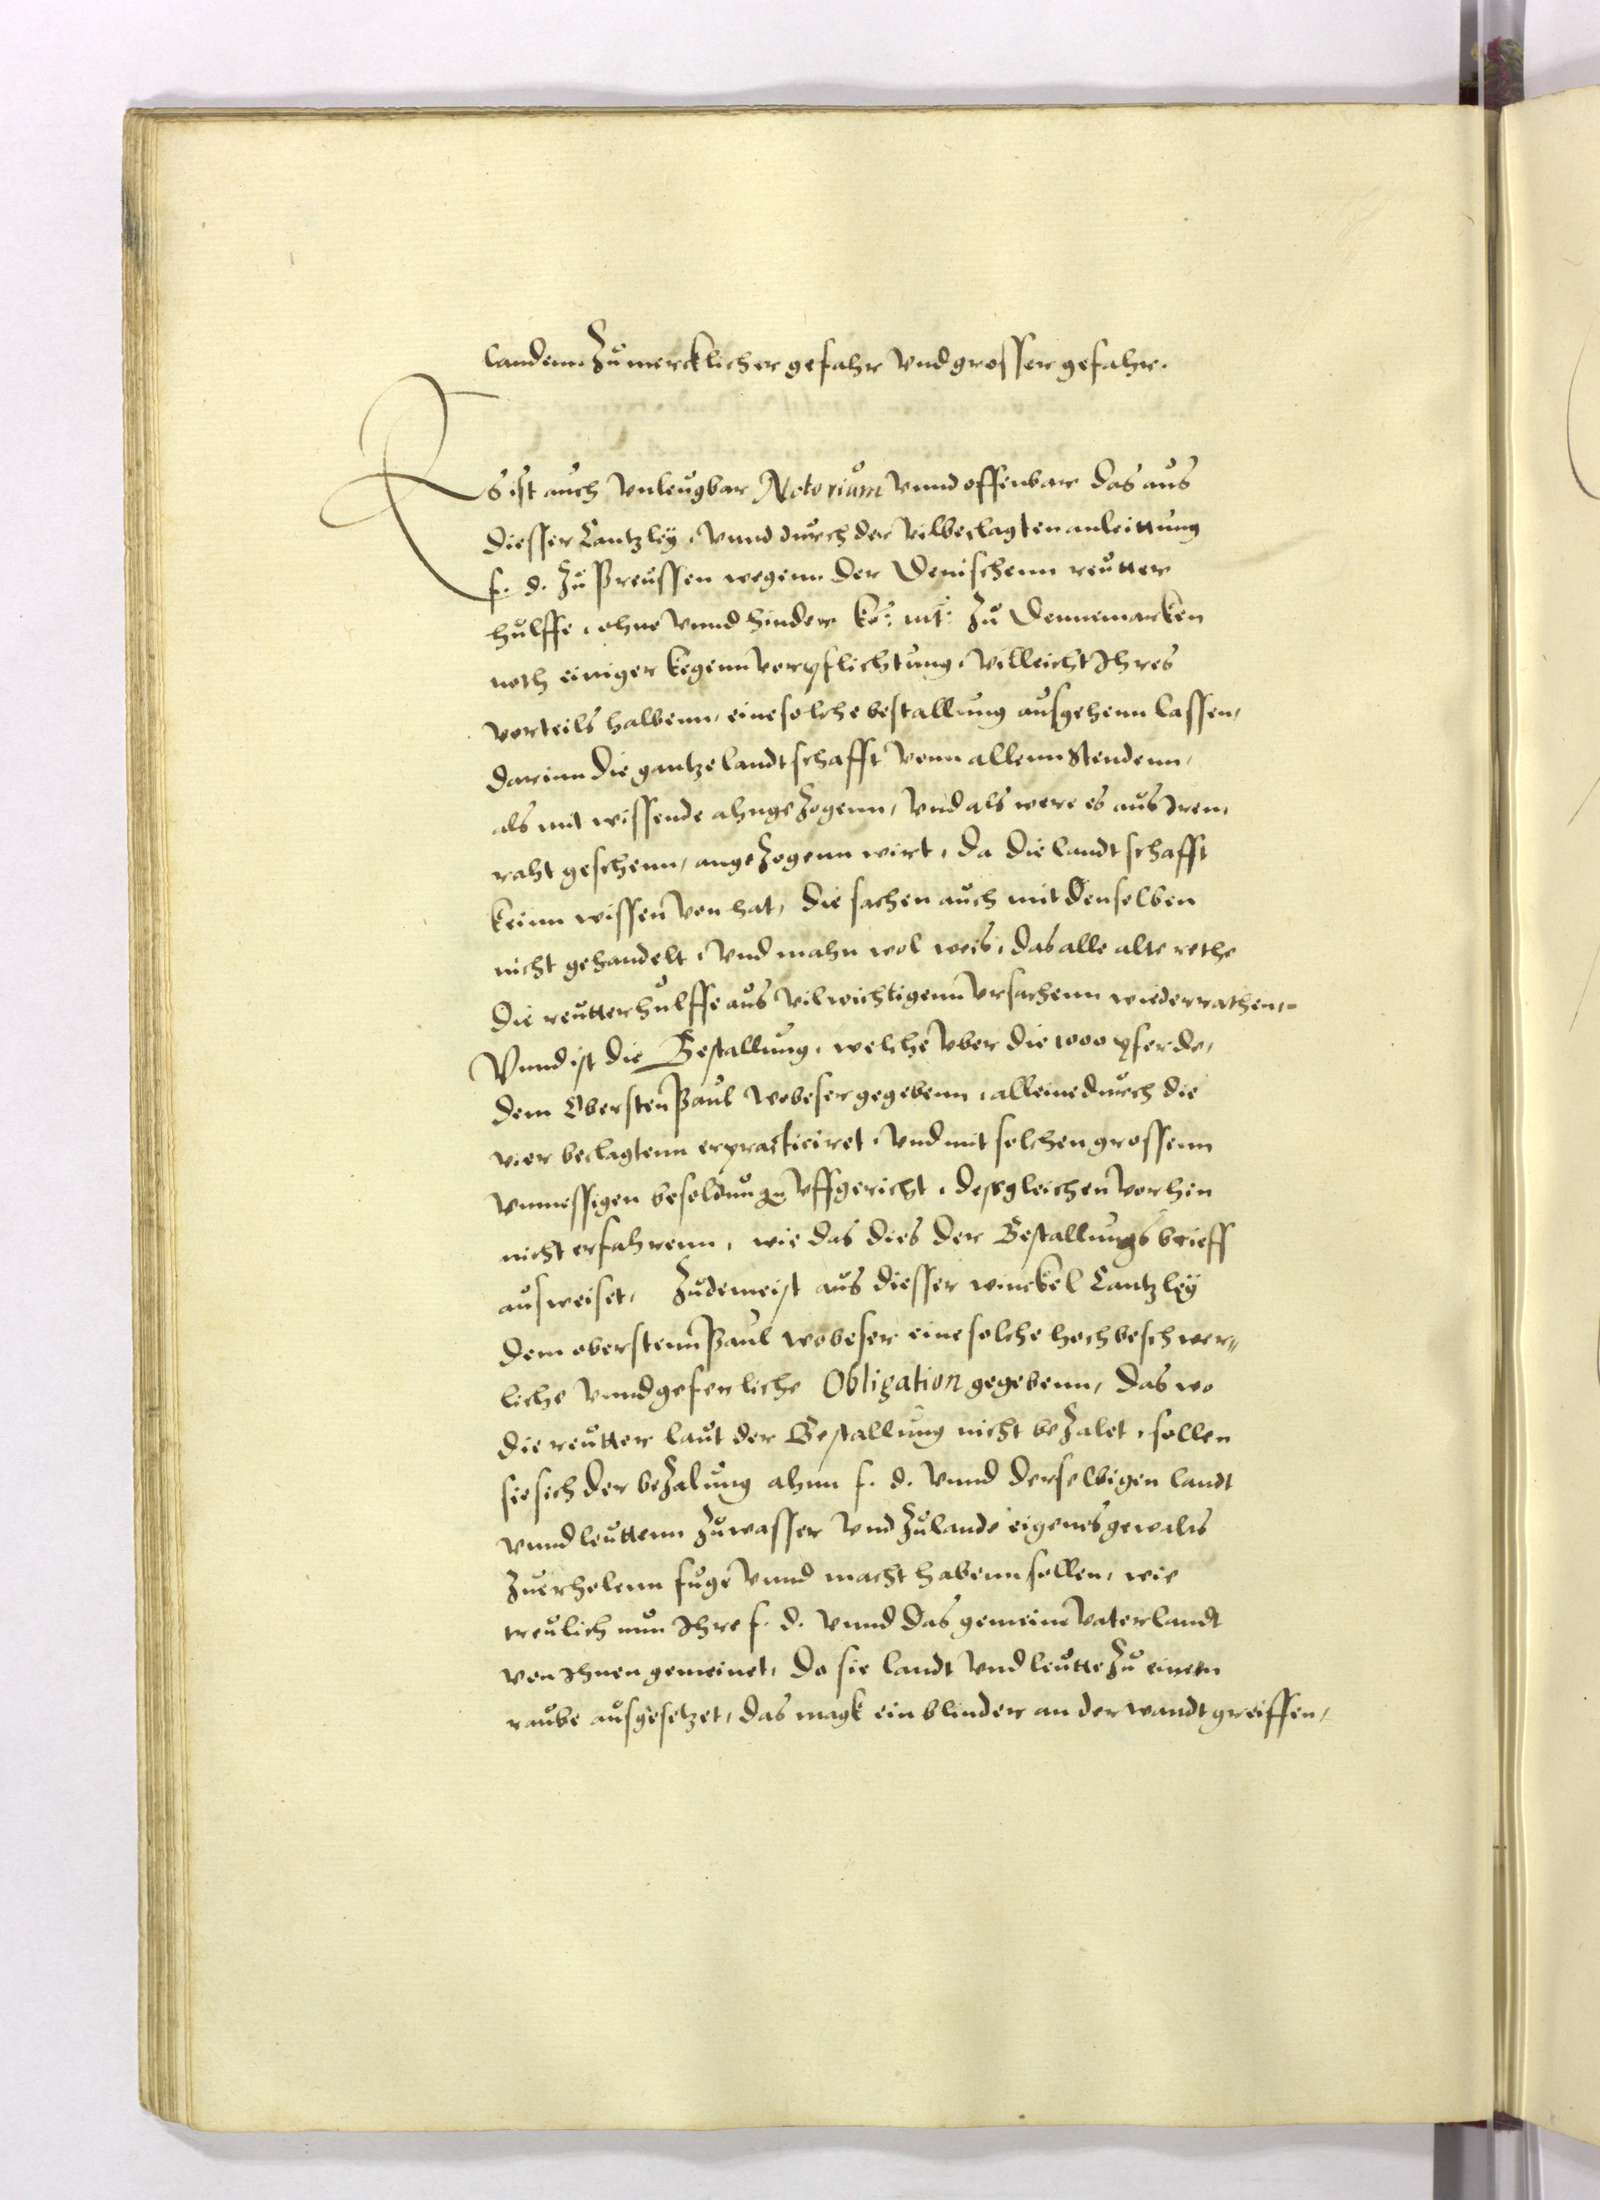 landenn zu mercklicher gefahr vnd grosser gefahr.
Es ist auch vnleugbar Notorium vnnd offenbar das aus
diesser Cantzley, vnnd durch der vilbeclagten anleittung
f. d. zu Preussen wegenn der Denischenn reutter
hulffe, ohne vnnd hinder ko: mt: zu Dennemarken
noch einiger kegenn verpflichtung, villeicht Ihres
vorteils halbenn, eine solche bestallung ausgehenn lassen,
darinn die gantze landtschafft vonn allenn Stendenn,
als mit wissende ahngezogenn, vnd als were es aus Irem
raht geschenn, angezogenn wirt, da die landtschafft
keinn wissen von hat, die sachen auch mit denselben
nicht gehandelt, vnd mahn wol weis, das alle alte rethe
die reutterhulffe aus vil wichtigenn vrsachenn wiederrathen,
Vnnd ist die Bestallung, welche vber die 1000 pferde,
dem Obersten Paul Wobeser gegebenn, alleine durch die
vier beclagtenn erpracticiret, vnd mit solchen grossenn
vnmessigen besoldungen vffgericht, dessgleichen vorhin
nicht erfahrenn, wie das dies der Bestallungs brieff
ausweiset, Zudeme ist aus diesser winckel Cantzley
dem oberstenn Paul Wobeser eine solche hochbeschwer„
liche vnnd geferliche Obligation gegebenn, das wo
die reutter laut der Bestallung nicht bezalet, sollen
sie sich der bezalung ahnn f. d. vnnd derselbigen landt
vnnd leuttenn zu wasser vnd zu lande eigenes gewalts
zuerholenn fuge vnnd macht habenn sollen, wie
treulich nun Ihre f. d. vnnd das gemeine vaterlandt
von Ihnen gemeinet, do sie landt vnd leutte zu einem
raube ausgesetzet, das magk ein blinder an der wandt greiffen,